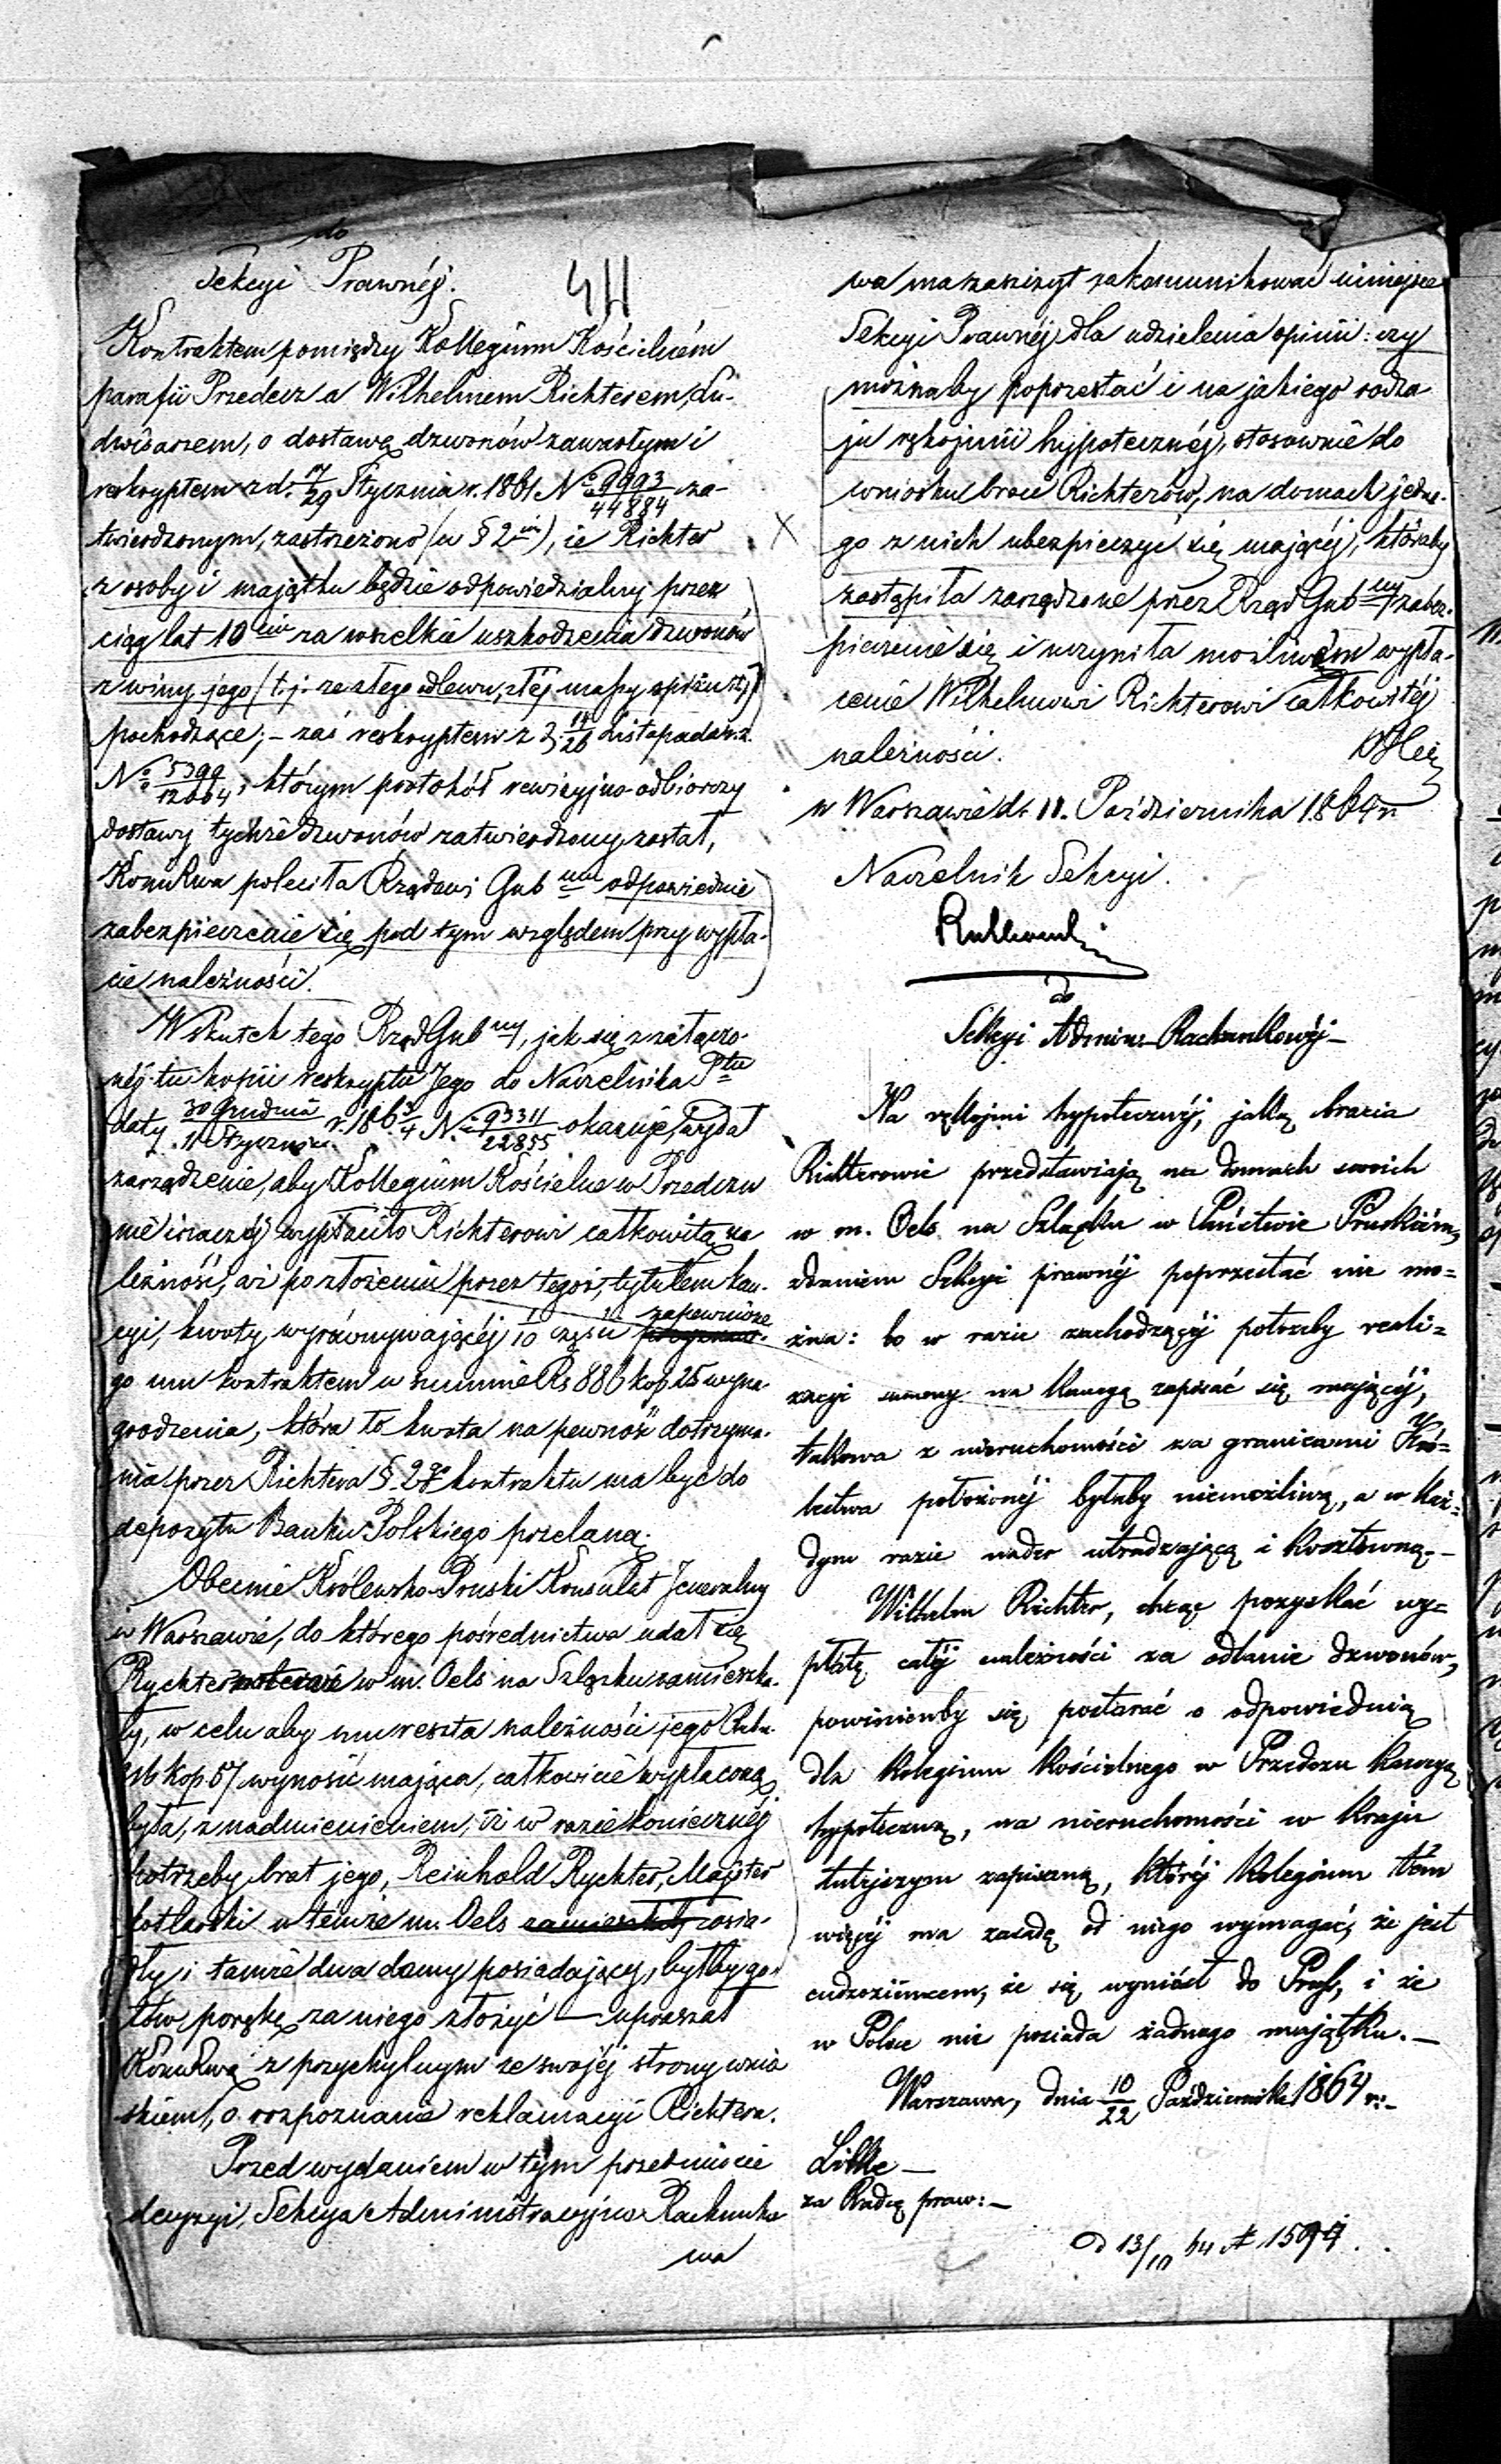 do
Sekcyi Prawnéj.
44
Kontraktem pomiędzy Kollegium Kościelném
parafii Przedecz a Wilhelmem Richterem, Lu-
dwisarzem, o dostawę dzwonów zawartym i
reskryptem z d. 17/29 Stycznia r. 1861 No 9993/44884 za-
twierdzonym, zastrzeżono (w § 2im), że Richter
z osoby i majątku będzie odpowiedzialny przez
ciąg lat 10ciu za wszelkie uszkodzenia dzwonów
z winy jego (t. j. ze złego odlewu, złéj massy spiżu itp)
pochodzące; – zaś reskryptem z d. 14/26 Listopada r. z.
No 5399/12664, którym protokół rewizyjno-odbiorczy
dostawy tychże dzwonów zatwierdzony został,
Kom Rwa poleciła Rządowi Gubmu odpowiednie
zabezpieczenie się pod tym względem przy wypła-
cie należności.
Wskutek tego Rząd Gubny, jak się z załączo-
néj tu kopii reskryptu Jego do Naczelnika Ptu
daty 30 Grudnia/11 Stycznia r. 1863/4 No 93311/22855 okazuje, wydał
zarządzenie, aby Kollegium Kościelne w Przedczu
nie inaczéj wypłaciło Richterowi całkowitą na
leżność, aż po złożeniu przez tegoż, tytułem kau-
cyi, kwoty wyrównywającéj 1/10 części zapewnione
go mu kontraktem w summie Rs 886 kop 25 wyna-
grodzenia, która to kwota na pewność dotrzyma-
nia przez Richtera § 2go kontraktu ma być do
depozytu Banku Polskiego przelaną.
Obecnie Królewsko-Pruski Konsulat Jeneralny
w Warszawie, do którego pośrednictwa udał się
Rychter w m. Oels na Szlązku zamieszka-
ły, w celu aby mu reszta należności jego Rubr.
kop 57 wynosić mająca, całkowicie wypłaconą
była, z nadmienieniem, iż w razie koniecznéj
potrzeby brat jego, Reinhold Rychter, Majster
kotlarski w temże m. Oels zamieszkały osia-
dły i tamże dwa domy posiadający, byłby go-
tów porękę za niego złożyć — upraszał
Kom Rwą z przychylnym ze swojéj strony wnio
skiem, o rozpoznanie reklamacyi Richtera.
Przed wydaniem w tym przedmiocie
decyzyi, Sekcya Administracyjno Rachunko
wa
wa ma zaszczyt zakomunikować niniejsze
Sekcyi Prawnéj dla udzielenia opinii: czy
możnaby poprzestać i na jakiego rodza
ju rękojmii hypotecznéj, stosownie do
wniosku braci Richterów, na domach jedne-
go z nich ubezpieczyć się mającéj, któraby
X
zastąpiła zarządzone przez Rząd Gubny zabez-
pieczenie się i uczyniła możliwém wypła-
cenie Wilhelmowi Richterowi całkowitéj
należności.
w Warszawie d. 11. Października 1864 r.
Naczelnik Sekcyi.
do
Sekcyi Admin.-Rachunkowéj –
Na rękojmi hypotecznéj, jaką bracia
Richterowie przedstawiają na domach swoich
w m. Oels na Szląsku w Państwie Pruskiém,
zdaniem Sekcyi prawnéj poprzestać nie mo=
żna: bo w razie zachodzącéj potrzeby reali=
zacyi summy na kaucyą zapisać się mającéj,
takowa z nieruchomości za granicami Kró=
lestwa położonéj byłaby niemożliwą, a w każ=
dym razie nader utrudzającą i kosztowną.–
Wilhelm Richter, chcąc pozyskać wy=
płatę całéj należności za odlanie dzwonów,
powinienby się postarać o odpowiednią
dla Kolegium Kościelnego w Przedczu kaucyą
hypoteczną, na nieruchomości w kraju
tutejszym zapisaną, któréj Kolegium tém
więcéj ma zasadę od niego wymagać, że jest
cudzoziemcem, że się wyniósł do Prus, i że
w Polsce nie posiada żadnego majątku.–
Warszawa, dnia 10/22 Października 1864 r:–
Libke –
za Radcę praw:–
d 13/10 64 No 1594.